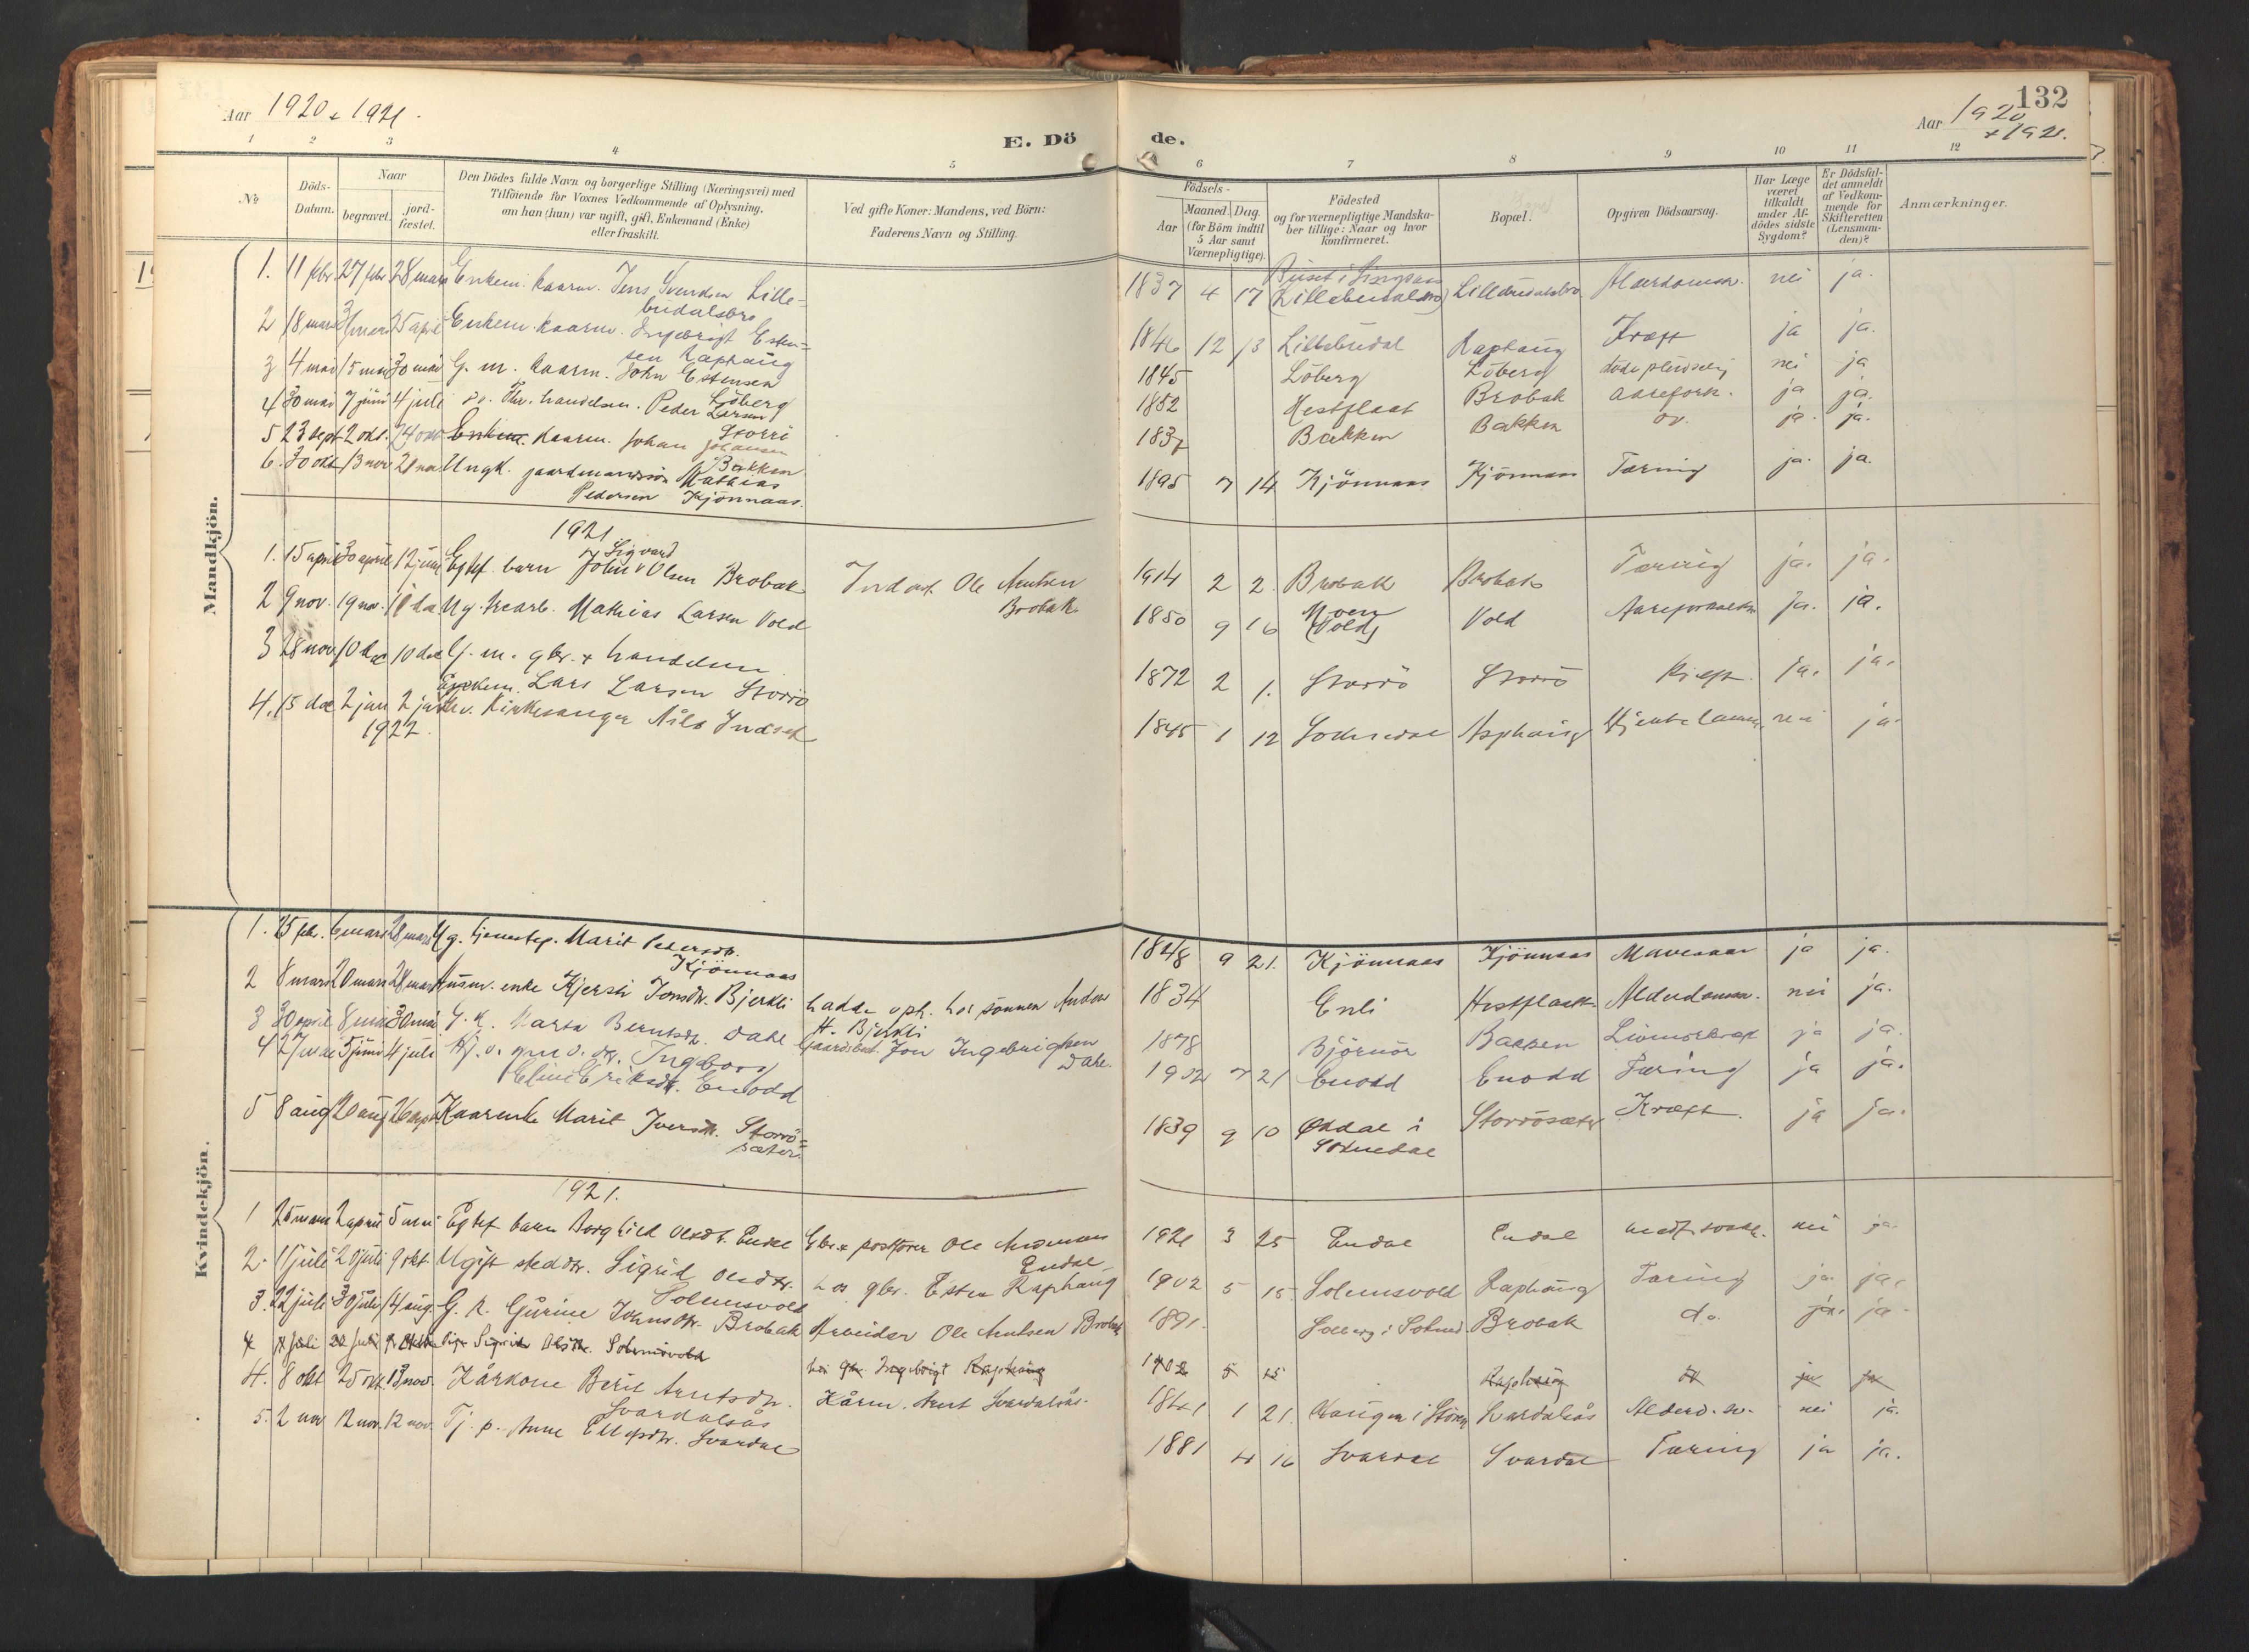 Aar 1920 + 1921.
E. Dö de.
132
Aar 1920 + 1921.
1 2 3 4 5 6 7 8 9 10 11 12
№
Döds-Datum.
Naar
begravet.
jord-fæstet.
Den Dödes fulde Navn og borgerlige Stilling (Næringsvei) med
Tilföiende for Voxnes Vedkommende af Oplysning,
om han (hun) var ugift, gift, Enkemand (Enke)
eller fraskilt.
Ved gifte Koner: Mandens, ved Börn:
Faderens Navn og Stilling.
Födsels-
Aar
Maaned. Dag.
(for Börn indtil
5 Aar samt
Værnepligtige).
Födested
og for værnepligtige Mandska-
ber tillige: Naar og hvor
konfirmeret.
Bopæl.
Opgiven Dödsaarsag.
Har Læge
været
tilkaldt
under Af-
dödes sidste
Sygdom?
Er Dödsfal-
det anmeldt
af Vedkom-
mende for
Skifteretten
(Lensman-
den)?
Anmærkninger.
Mandkjön.
1. 11 febr. 27 febr 28 mars Enkem. kaarm. Jens Svendsen Lille-
budalsbro 1837 4 17 (Lillebudalsbro) Lillebudalsbro Alderdomssv. nei ja.
2 18 mars 31 mars 25 april Enkem. kaarm. Ingebrigt Esten-
sen Raphaug 1846 12 13 Lillebudal Raphaug Kræft ja ja.
3 4 mai 15 mai 30 mai G. m. kaarm. John Estensen
Löberg 1845 Löberg Löberg döde pludselig nei ja
4 30 mai 7 juni 4 juli Peder Larsen
Storrö 1852 Hestflaat Brobak aarefork. ja ja.
5 23 sept 2 okt. 24 okt Enkem. kaarm. Johan Johansen
Bakken 1837 Bakken Bakken do. ja. ja.
6. 30 okt 13 nov 21 nov Ungk. gaardmandssön Mathias
Pedersen Kjönnaas. 1895 7 14 Kjönnaas Kjönnaas Tæring ja. ja.
1921
1. 15 april 30 april 12 juni Egtef. barn John Sigvard Olsen Brobak Inderst Ole Arntsen
Brobak 1914 2 2. Brobak Brobak Tæring ja. ja.
2 9 nov. 19 nov. 10 dec Ug. Mathias Larsen Vold 1850 9 16 Moen
(Vold) Vold Aareforkalkn ja. ja.
3 28 nov. 10 dec 10 dec G. m. gbr. + handelsm
Lars Larsen Storrö 1872 2 1. Storrö Storrö Kræft. ja. ja.
4. 15 dec 2 jan 2 jan Enkem. Kirkesanger Nils Indset
1922. 1845 1 12 Soknedal Asphaug Hjertelammelse nei ja.
Kvindekjön.
1. 25 feb. 6 mars 28 mars Ug. tjenestep. Marit Pedersdr.
Kjönnaas 1848 9 21. Kjönnaas Kjönnaas Mavesaar ja ja.
2 8 mars 20 mars 28 mars Husm. enke Kjersti Jonsdr. Bjerkli hadde oph. hos sönnen Anders
H. Bjerkli 1834 Enli Hestflaat Alderdomssv. nei ja.
3 30 april 8 mai 30 mai G. k. Marta Berntsdr. Dahl Gaardsbest. Jon Ingebrigtsen
Dahl. 1878 Björnör Bakken Livmorkræft ja ja.
4 27 mai 5 juni 4 juli Ingeborg
Eline Eriksdr. Enodd 1902 7 21 Enodd Enodd Tæring ja ja.
5 8 aug 20 aug 26 sept Kaarenke Marit Iversdr. Storrö-
sæter. 1839 9 10 Opdal i
Soknedal Storrösæter Kræft. ja ja.
1921.
1 25 mars 2 april 5 mai Egtef. barn Borghild Olsdt. Endal Gbr. + postförer Ole
Endal 1921 3 25 Endal Endal medf. svakh. nei ja.
2. 11 juli 20 juli 9 okt. Ugift sted dtr. Sigrid Olsdtr.
Solemsvold hos gbr. Esten Raphaug 1902 5 15. Solemsvold Raphaug Tæring ja. ja.
3. 22 juli 30 juli 14 aug. G. k. Gurine Johnsdtr. Brobak Arbeider Ole Arntsen Brobak 1891. Solberg i Sokned. Brobak do. ja. ja.
4 11 juli 20 juli 9 Oktbr Sigrid Olsdtr. Solemsvold hos gbr Ingebrigt Raphaug 1902 5 15 Raphaug ja ja
4. 8 okt 25 okt. 13 nov. Kårkone Berit Arntsdtr.
Svardalsås Kårm. Arnt Svardalsås. 1841 1 21. i Stören Svardalsås Alderd. sv. nei ja.
5. 2 nov 12 nov. 12 nov. Tj. p. Anne Svardal 1881 4 16 Svardal Svardal Tæring ja ja.